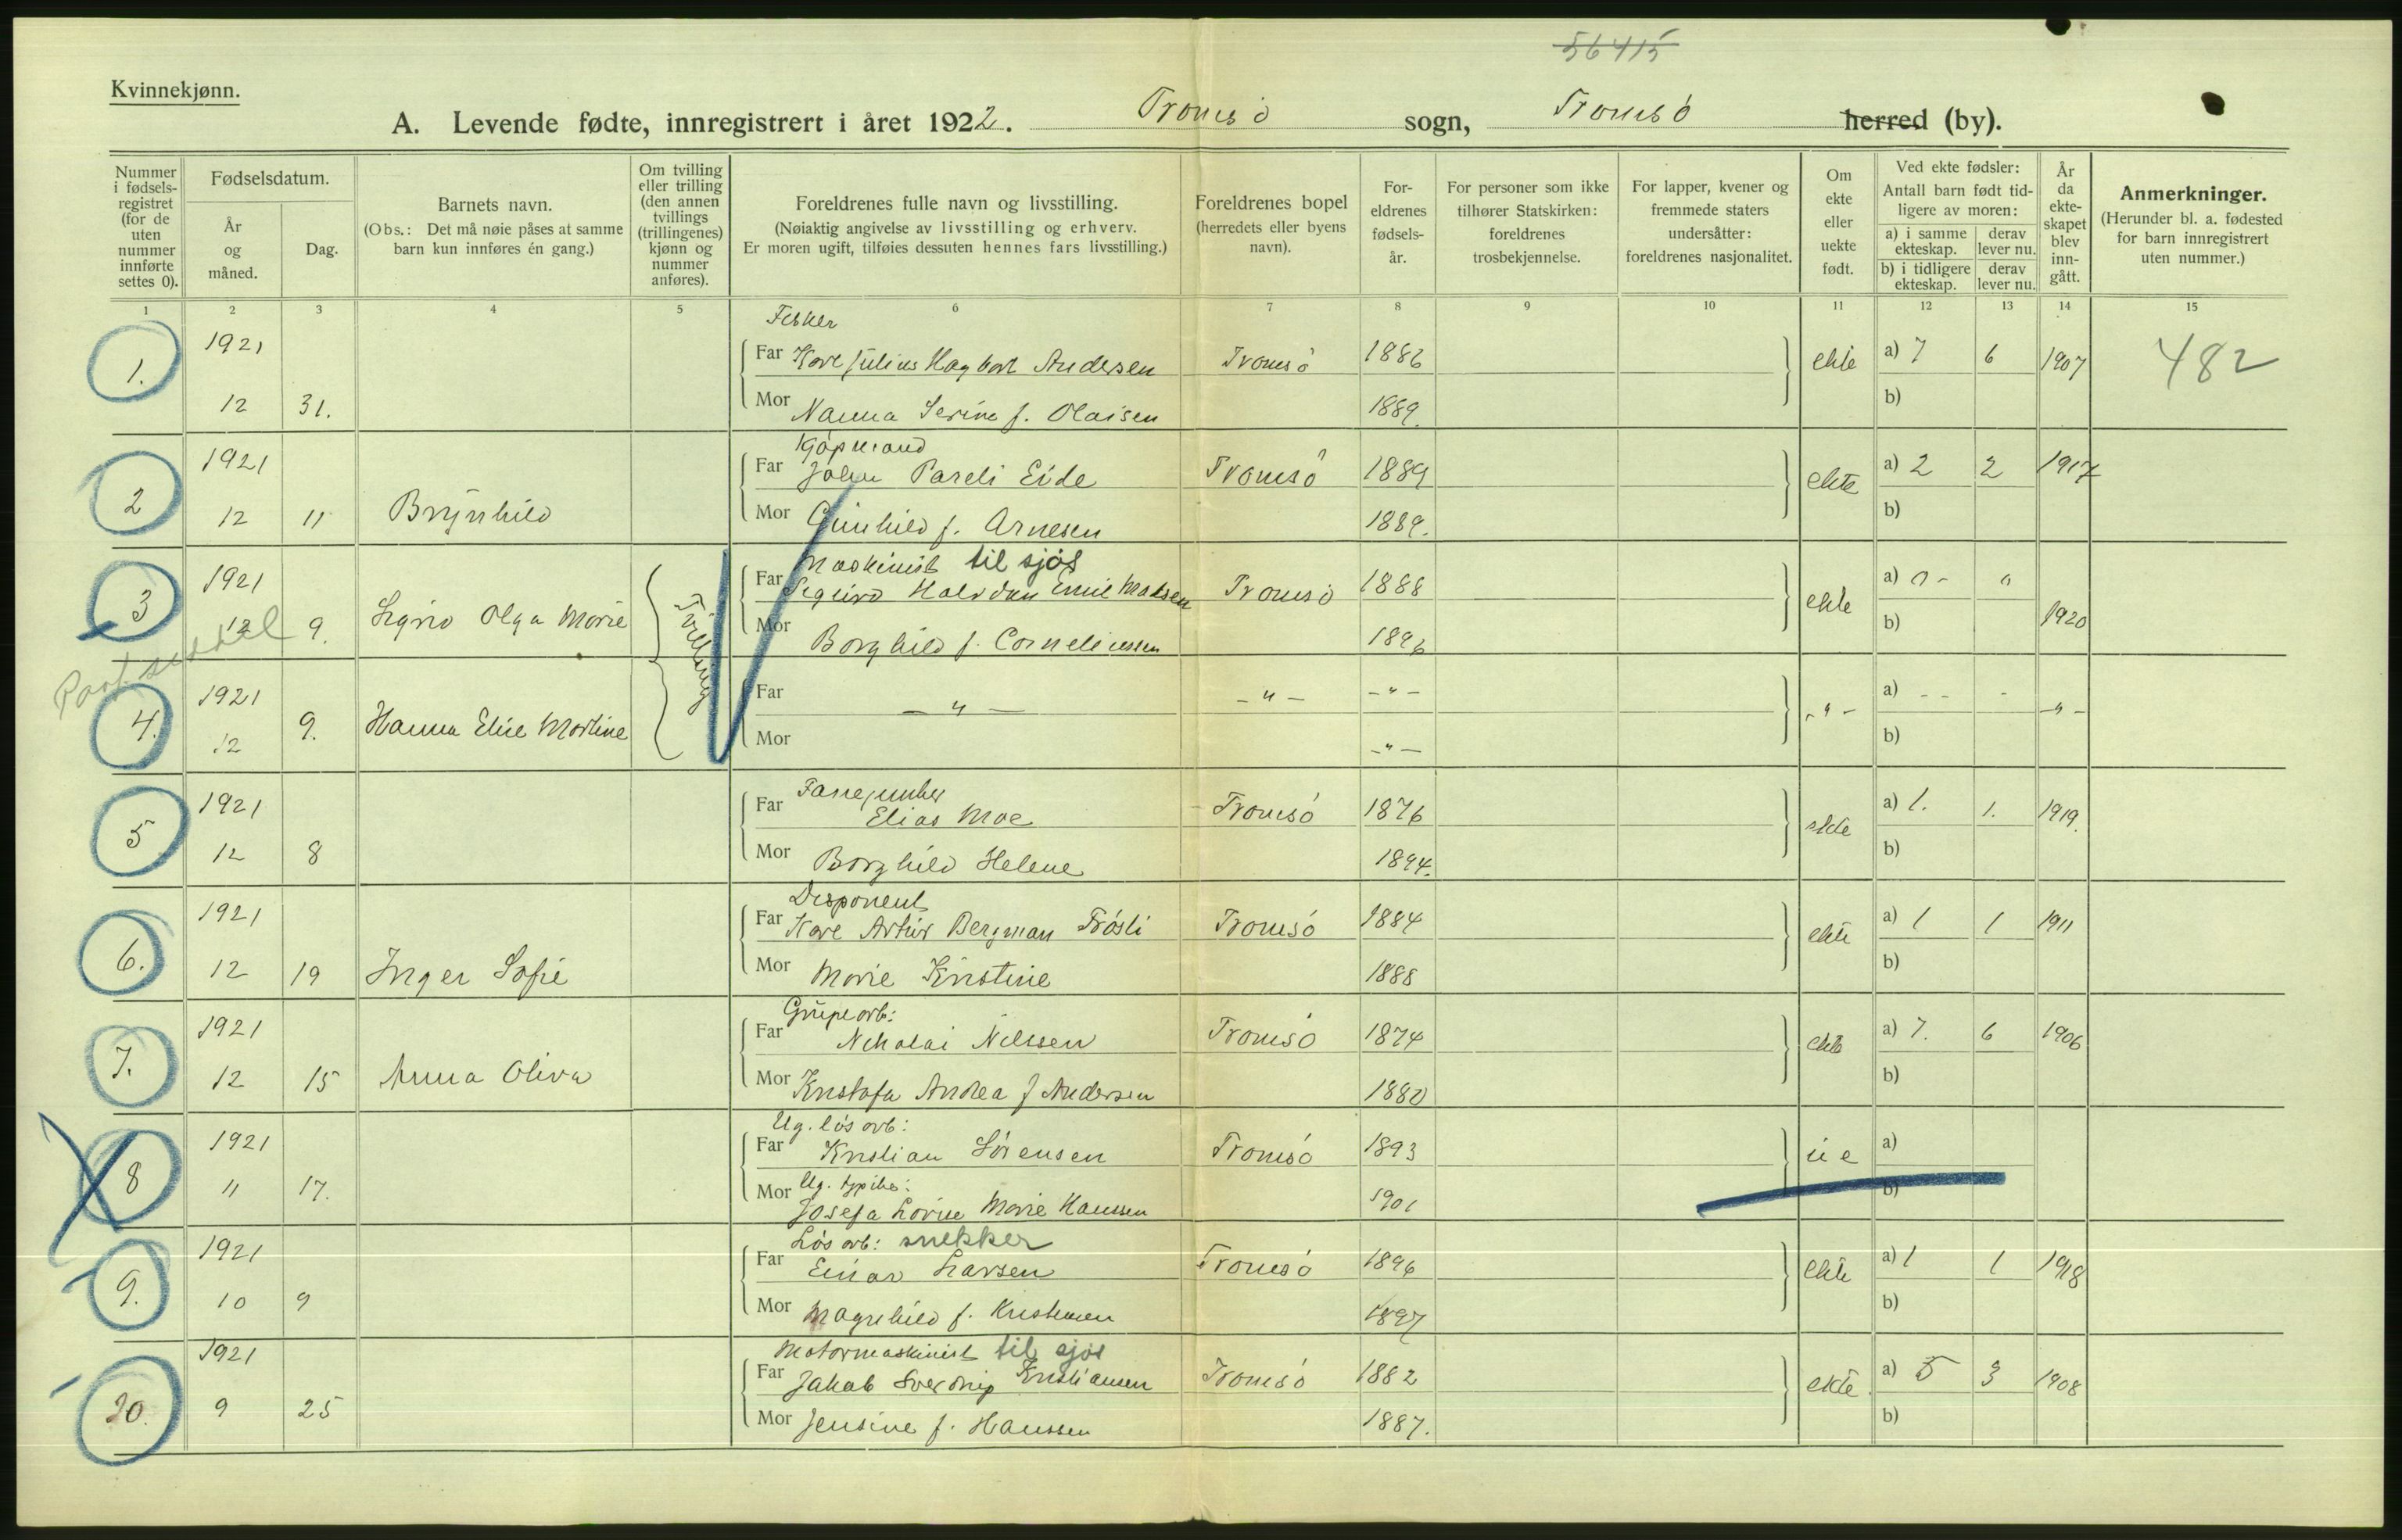 56415
Kvinnekjønn.
A. Levende fødte, innregistrert i året 1922. Tromsö sogn, Tromsö herred (by).
Nummer i fødsels-registret (for de uten nummer innførte settes 0).
Fødselsdatum.
År og måned.
Dag.
Barnets navn.
(Obs.: Det må nøie påses at samme barn kun innføres én gang.)
Om tvilling eller trilling (den annen tvillings (trillingenes) kjønn og nummer anføres).
Foreldrenes fulle navn og livsstilling.
(Nøiaktig angivelse av livsstilling og erhverv.
Er moren ugift, tilføies dessuten hennes fars livsstilling.)
Foreldrenes bopel (herredets eller byens navn).
For-eldrenes fødsels-år.
For personer som ikke tilhører Statskirken: foreldrenes trosbekjennelse.
For lapper, kvener og fremmede staters undersåtter: foreldrenes nasjonalitet.
Om ekte eller uekte født.
Ved ekte fødsler:
Antall barn født tid-ligere av moren:
a) i samme ekteskap. derav lever nu.
b) i tidligere ekteskap. derav lever nu.
År da ekte-skapet blev inn-gått.
Anmerkninger.
(Herunder bl. a. fødested for barn innregistrert uten nummer.)
1 2 3 4 5 6 7 8 9 10 11 12 13 14 15
Fisker
1. 1921 Far Kare Julius Hagbart Andersen Tromsö 1886 ekte a) 7 6 1907 482
12 31. Mor Nanna Serine f. Olaisen 1889. b)
Kjöpmand
2 1921 Far John Pareli Eide Tromsö 1889 ekte a) 2 2 1917
12 11 Brynhild Mor Gunhild f. Arnesen 1889. b)
Maskinist til sjøs
3 1921 Far Sigurd Halvdan Emil Madsen Tromsö 1888 ekte a) 0 - 0
12 9. Sigrid Olga Marie Tvilling Mor Borghild f. Corneliussen 1896 b) 1920
4. 1921 Far — " — - " - - " - - " - a) - - - - " -
12 9. Hanna Elise Martine Mor - " - b)
5 1921 Far Elias Moe Tromsö 1876 ekte a) 1. 1. 1919.
12 8 Mor Borghild Helene 1894. b)
Disponent
6. 1921 Far Kare Artur Bergman Frösli Tromsö 1884 ekte a) 1 1 1911
12 19 Inger Sofie Mor Marie Kristine 1888 b)
Grupearb:
7. 1921 Far Nikolai Nilssen Tromsö 1874 ekte a) 7. 6 1906
12 15 Anna Oliva Mor Kristofa Andrea f Andersen 1880 b)
Ug. lös arb:
8 1921 Far Kristian Sörensen Tromsö 1893 u e a)
11 17. Mor Ug.
Josefa Lovise Marie Hanssen 1901 b)
Lös arb: snekker
9. 1921 Far Einar Larsen Tromsö 1896 ekte a) 1 1 1918
10 9 Mor Magnhild f. Kristensen 1897 b)
Motormaskinist til sjøs
10. 1921 Far Jakob Sverdrup Kristiansen Tromsö 1882 ekte a) 5 3 1908
9 25 Mor Jensine f. Hanssen 1887. b)